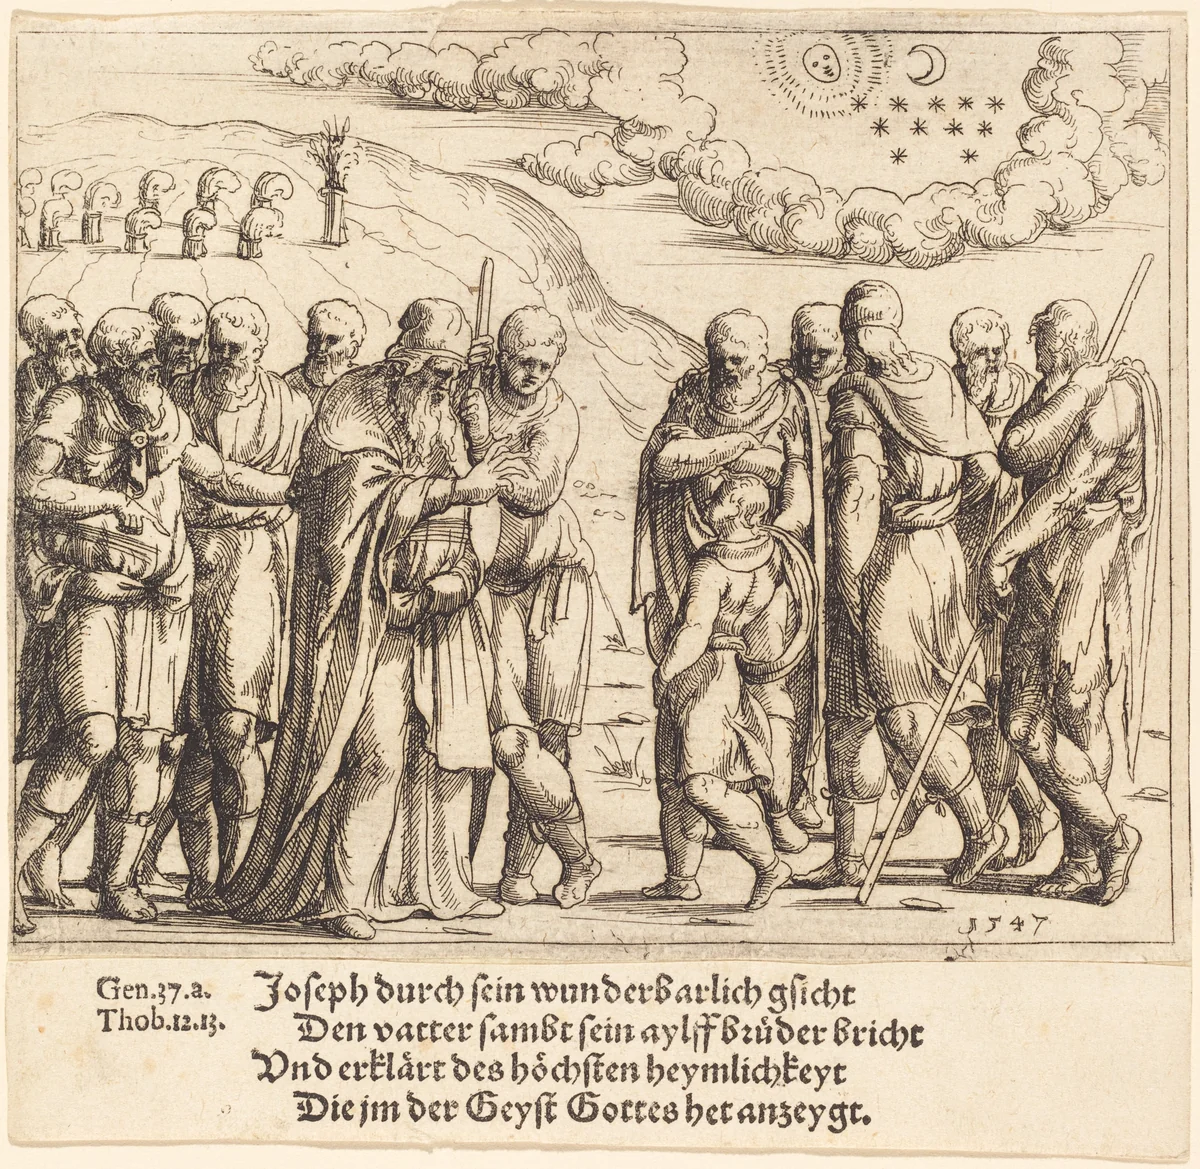 1547
Gen.37.a.
Thob.12.13.
Joseph durch sein wunderbarlich gsicht
Den vatter sambt sein aylff brüder bricht
Vnd erklärt des höchsten heymlichkeyt
Die jm der Geyst Gottes het anzeygt.